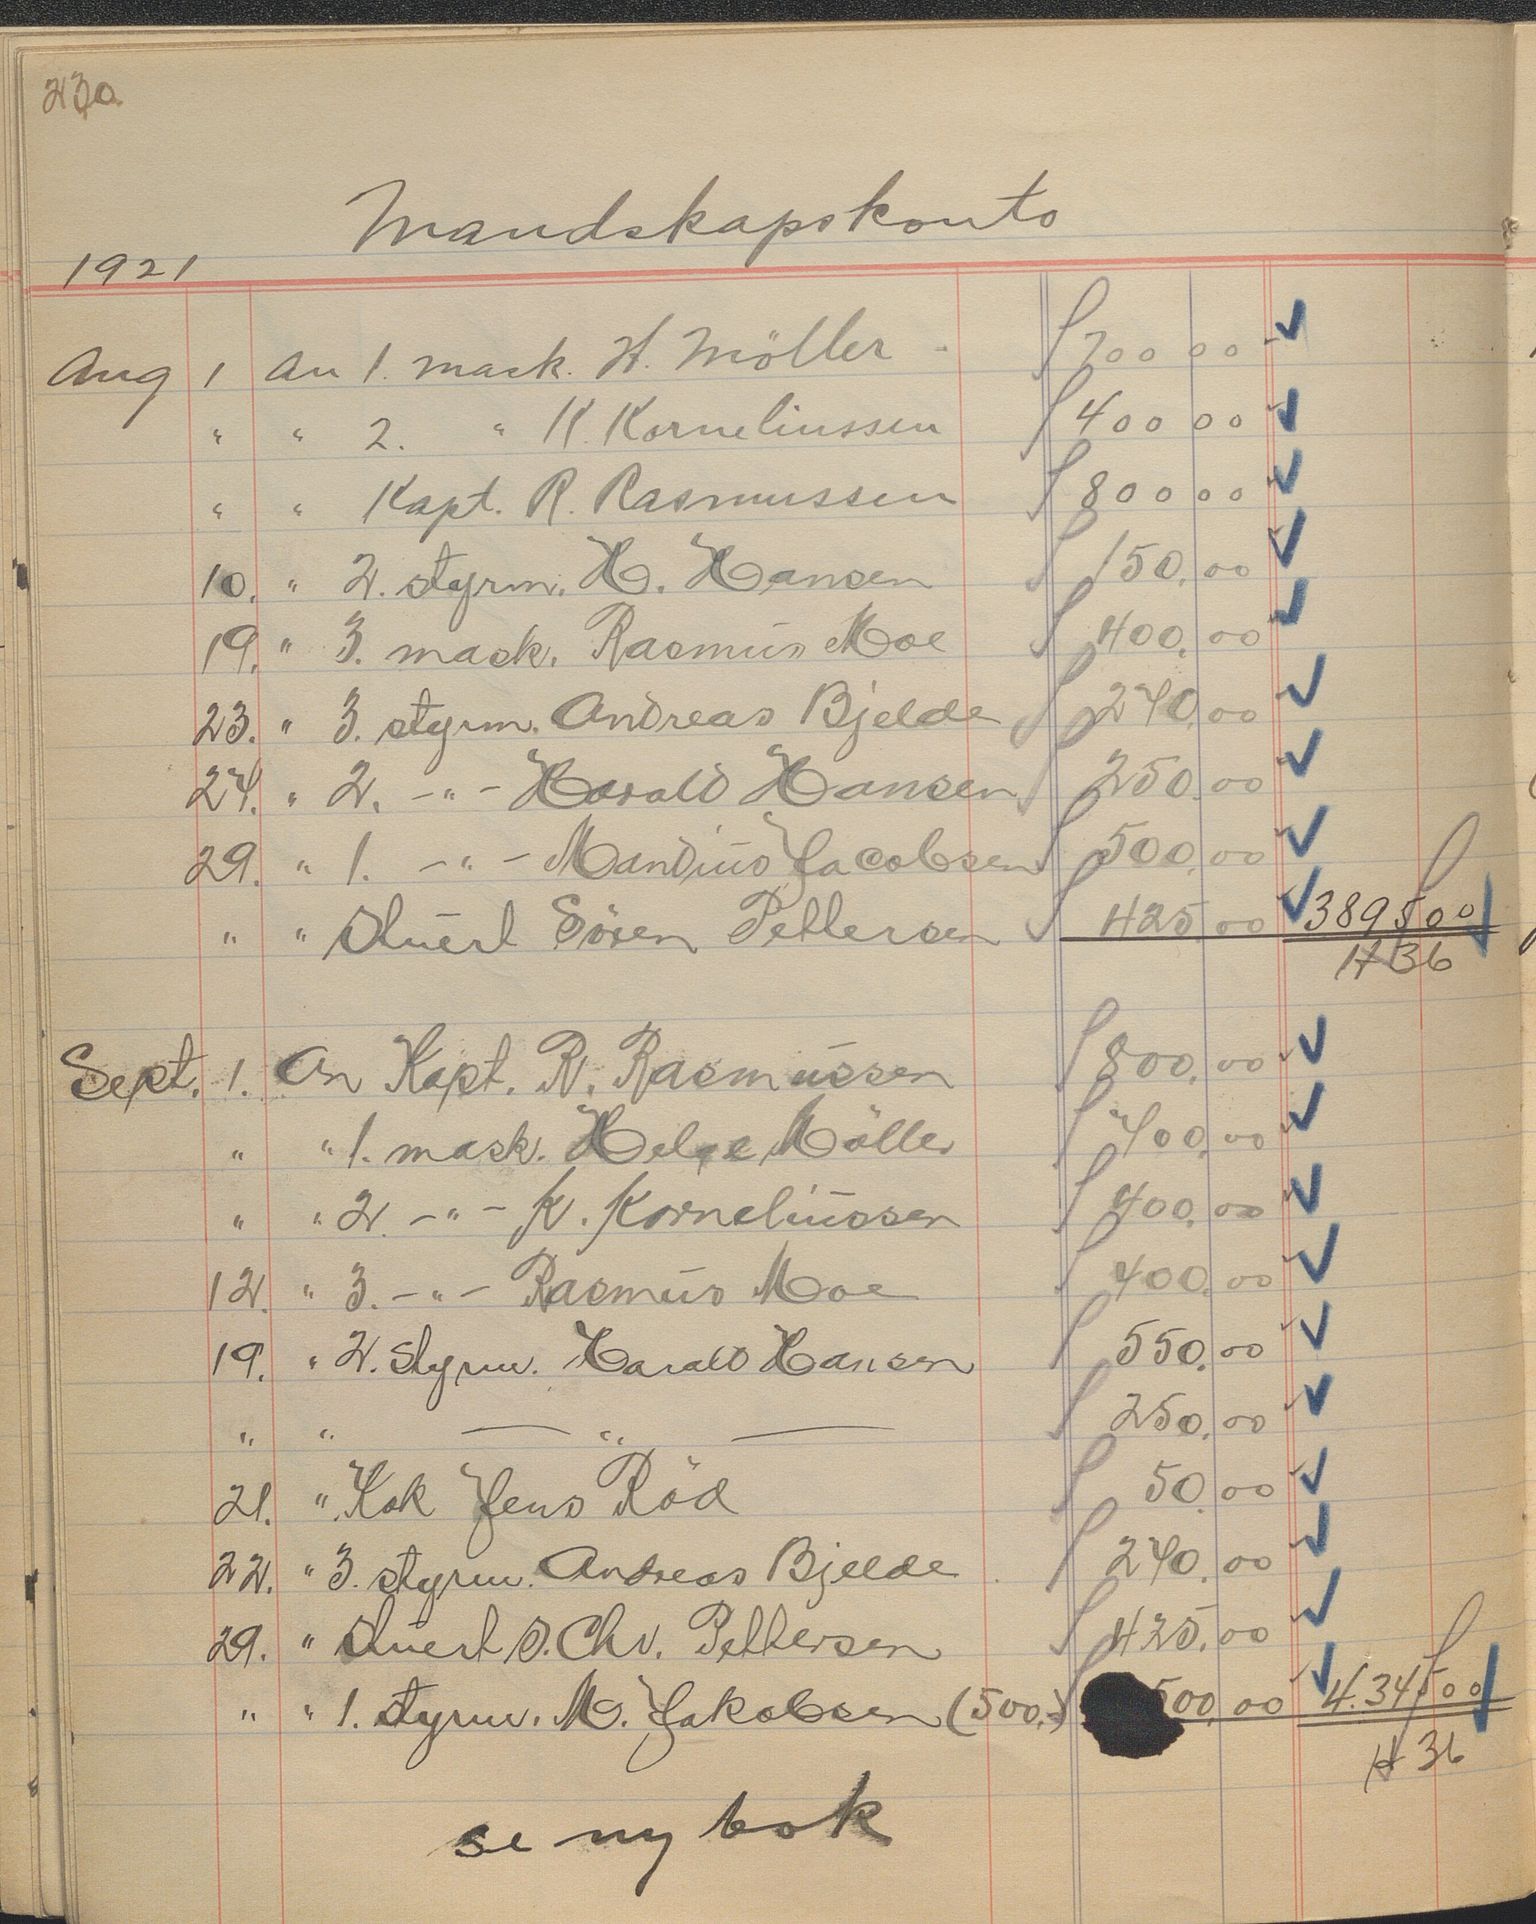 230
Mandskapskonto
1921
Aug 1 An 1. mask. H. Möller - 700 00
" " 2. " K. Korneliussen 400 00
" " Kapt. R. Rasmussen 800 00
10. " 2. styrm. H. Hansen 150.00
19. " 3. mask. Rasmus Moe 400.00
23. " 3. styrm. Andreas Bjelde 270.00
27. " 2. -"- Harald Hansen 250.00
29. " 1. -"- Mandius Jacobsen 500.00
" " Stuert Sören Pettersen 425.00 3895 00
H 36
Sept. 1. An Kapt. R. Rasmussen 800.00
" " 1. mask. Helge Möller 700.00
" " 2. -"- K. Korneliussen 400.00
12. " 3. -"- Rasmus Moe 400.00
19. " 2. styrm. Harald Hansen 550.00
" " — " — 250.00
21. " Kok Jens Röd 50.00
22. " 3. styrm. Andreas Bjelde 270.00
29. " Stuert S. Chr. Pettersen 425.00
" " 1. styrm. M. Jakobsen (500.) 500.00 4.345 00
H 36
se ny bok